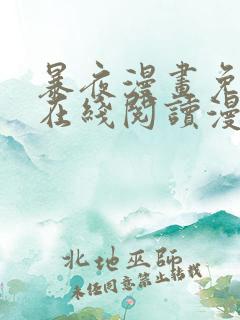 暴夜漫畫免
在綫閱讀漫
北地巫師
未经同意禁止转载